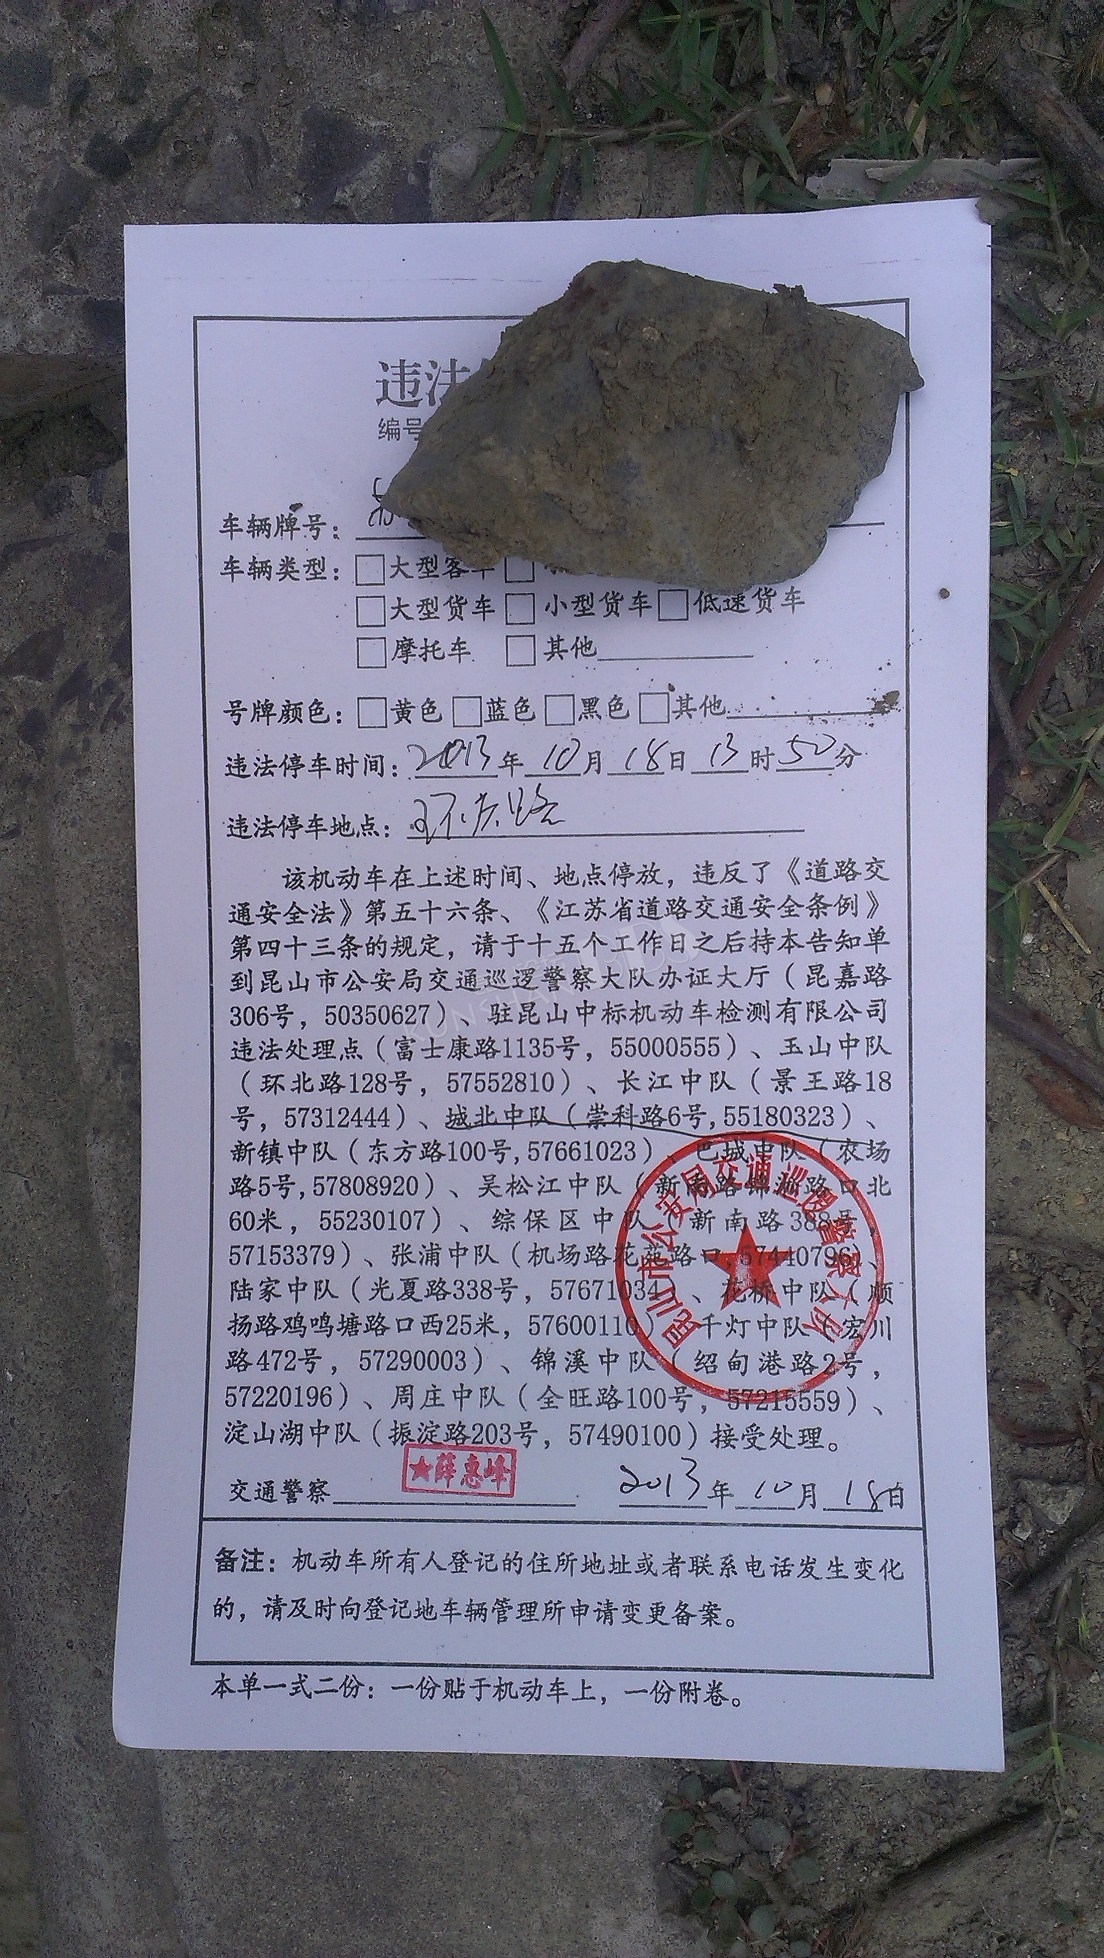 违法
编号
车辆牌号：苏
车辆类型：□大型客车□
□大型货车□小型货车□低速货车
□摩托车□其他
号牌颜色：□黄色□蓝色□黑色□其他
违法停车时间：2013年10月18日13时50分
违法停车地点：环庆路
该机动车在上述时间、地点停放，违反了《道路交
通安全法》第五十六条、《江苏省道路交通安全条例》
第四十三条的规定，请于十五个工作日之后持本告知单
到昆山市公安局交通巡逻警察大队办证大厅（昆嘉路
306号，50350627）、驻昆山中标机动车检测有限公司
违法处理点（富士康路1135号，55000555）、玉山中队
（环北路128号，57552810）、长江中队（景王路18
号，57312444）、城北中队（崇科路6号,55180323）、
新镇中队（东方路100号,57661023）、巴城中队（农场
路5号,57808920）、吴松江中队（新南路锦淞路口北
60米，55230107）、综保区中队（新南路388号，
57153379）、张浦中队（机场路花苑路口，57440796）、
陆家中队（光夏路338号，57671034）、花桥中队（顺
扬路鸡鸣塘路口西25米，57600110）、千灯中队（宏川
路472号，57290003）、锦溪中队（绍甸港路2号，
57220196）、周庄中队（全旺路100号，57215559）、
淀山湖中队（振淀路203号，57490100）接受处理。
昆山市公安局交通巡逻警察大队
交通警察 ★薛惠峰 2013年10月18日
备注：机动车所有人登记的住所地址或者联系电话发生变化
的，请及时向登记地车辆管理所申请变更备案。
本单一式二份：一份贴于机动车上，一份附卷。